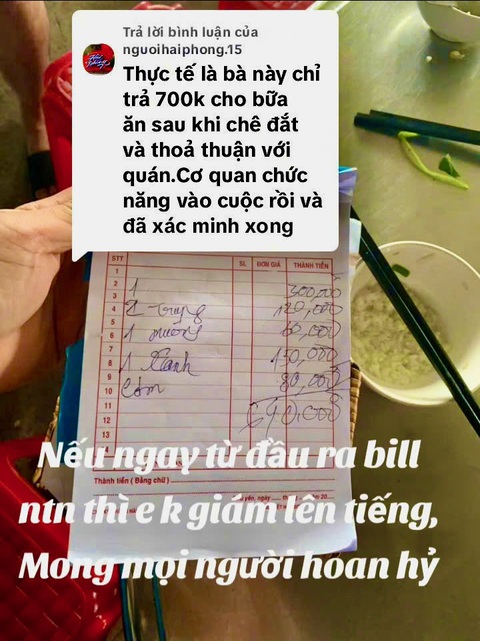 Trả lời bình luận của
nguoihaiphong.15
Thực tế là bà này chỉ
trả 700k cho bữa
ăn sau khi chê đắt
và thoả thuận với
quán.Cơ quan chức
năng vào cuộc rồi và
đã xác minh xong
STT SL ĐƠN GIÁ THÀNH TIỀN
1
2
3 1 300,000
4 2 trứng 120,000
5
6 1 muống 60,000
7
8 1 canh 130,000
9 Cơm 80,000
10
11 690.000
12
13
Nếu ngay từ đầu ra bill
Thành tiền ( Bằng chữ )
ntn thì e k giám lên tiếng,
Mong mọi người hoan hỷ